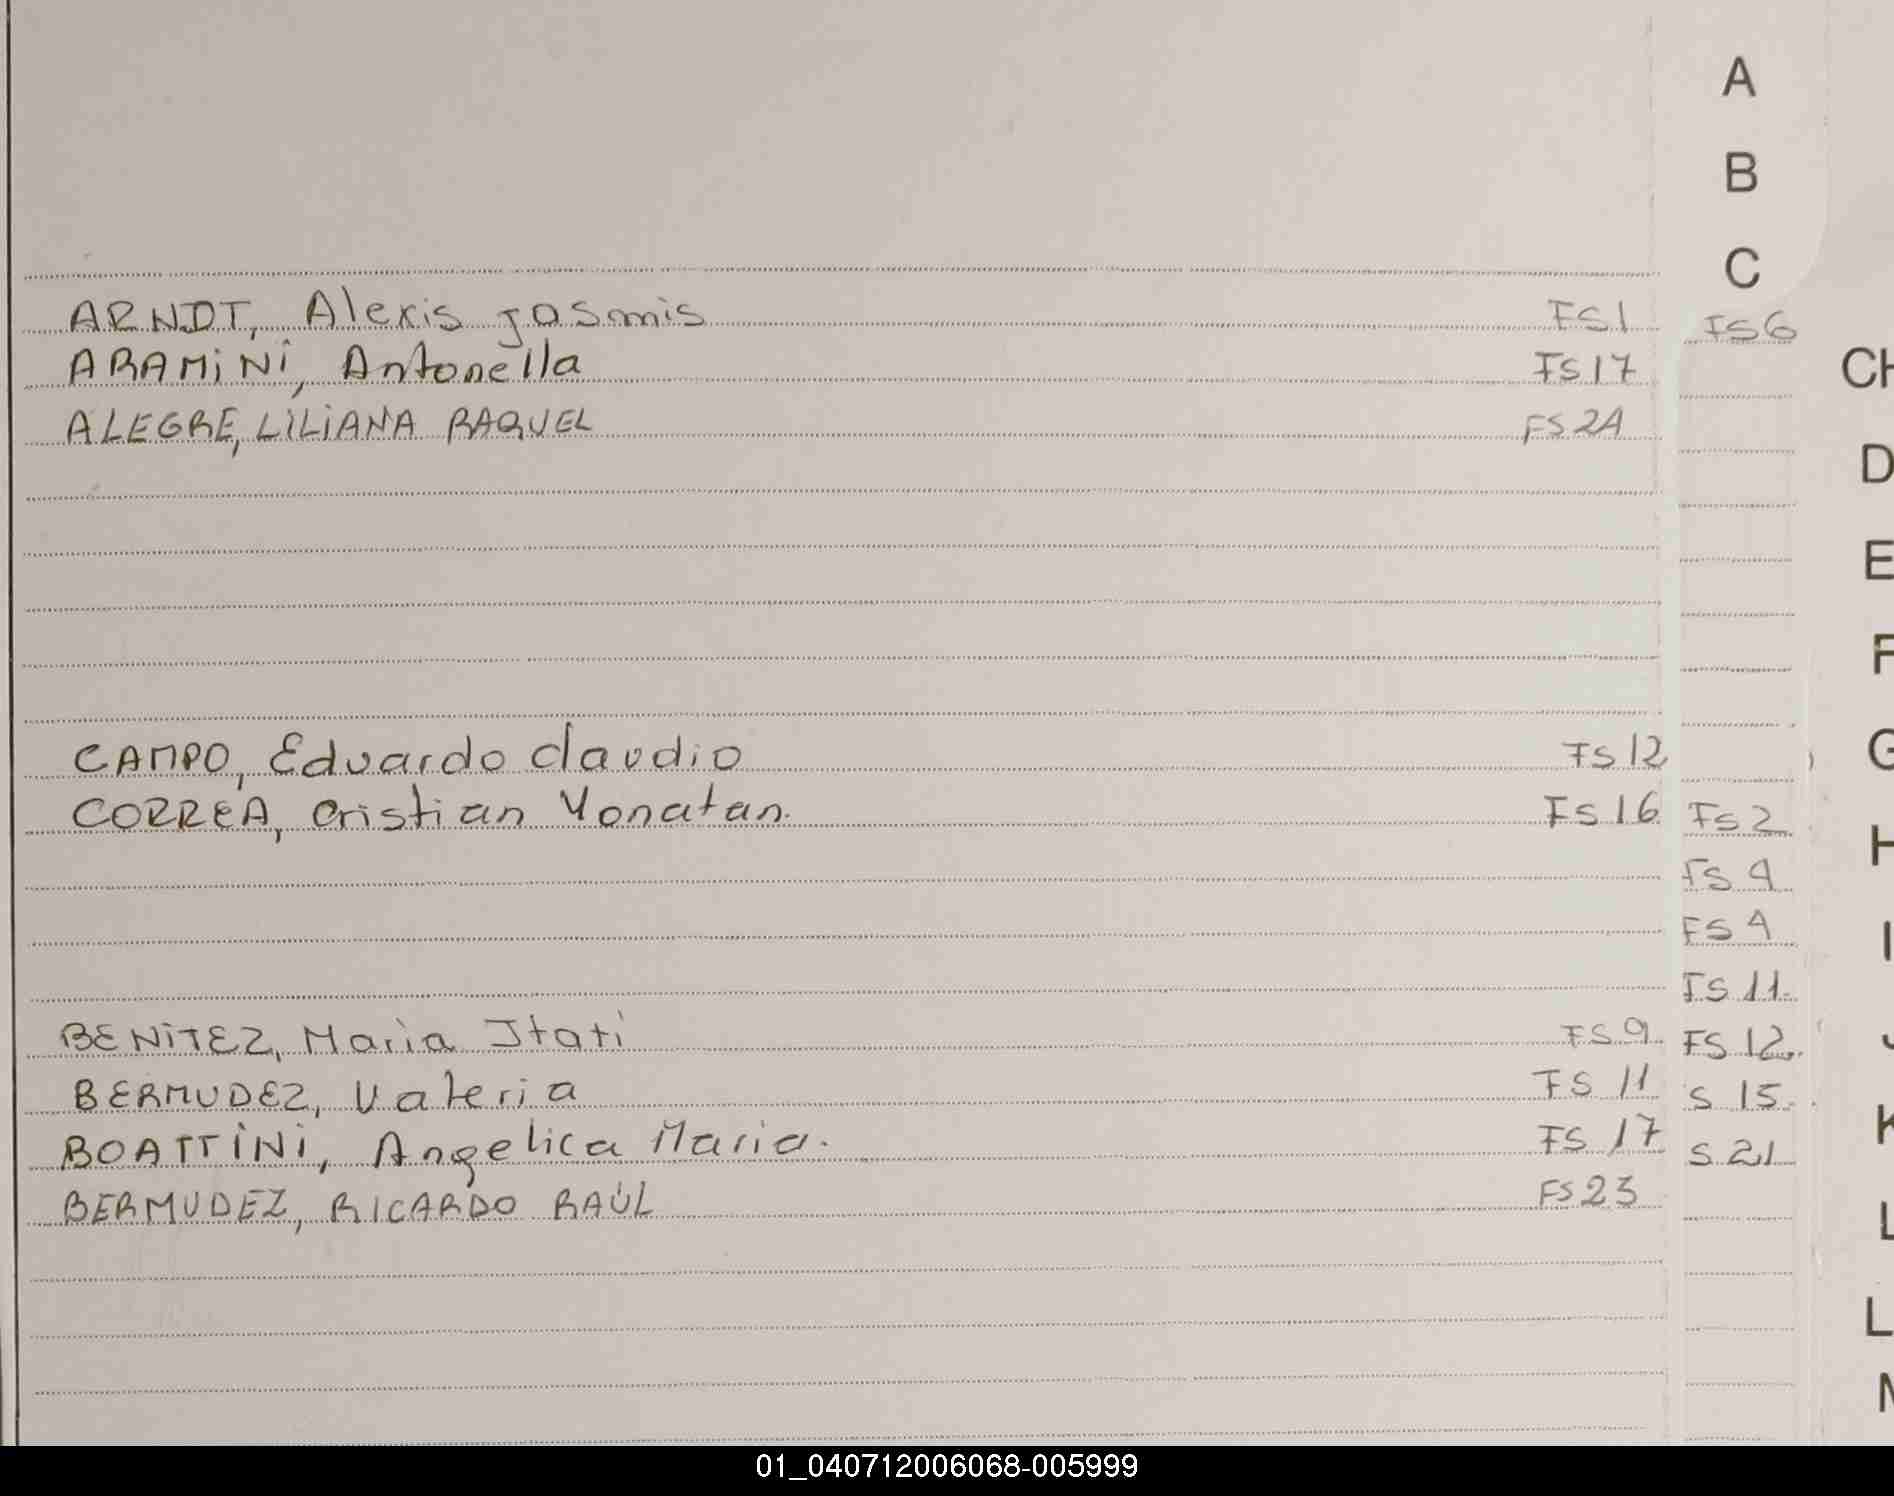 A
B
C
ARNDT, Alexis Jasmis FS1 FS6
ARAMiNi, Antonella FS17
CH
ALEGRE, LiLiANA RAQUEL FS24
D
E
F
G
CAMPO, Eduardo Claudio FS12
CORREA, Cristian Yonatan. FS16 FS2
H
FS 4
FS 4
I
FS 11
BENiTEZ, Maria Itati FS9 FS 12
J
BERMUDEZ, Valeria FS 11 S 15
K
BOATTiNi, Angelica Maria. FS 17 S 21
BERMUDEZ, RICARDO RAÚL FS23
L
L
M
01_040712006068-005999